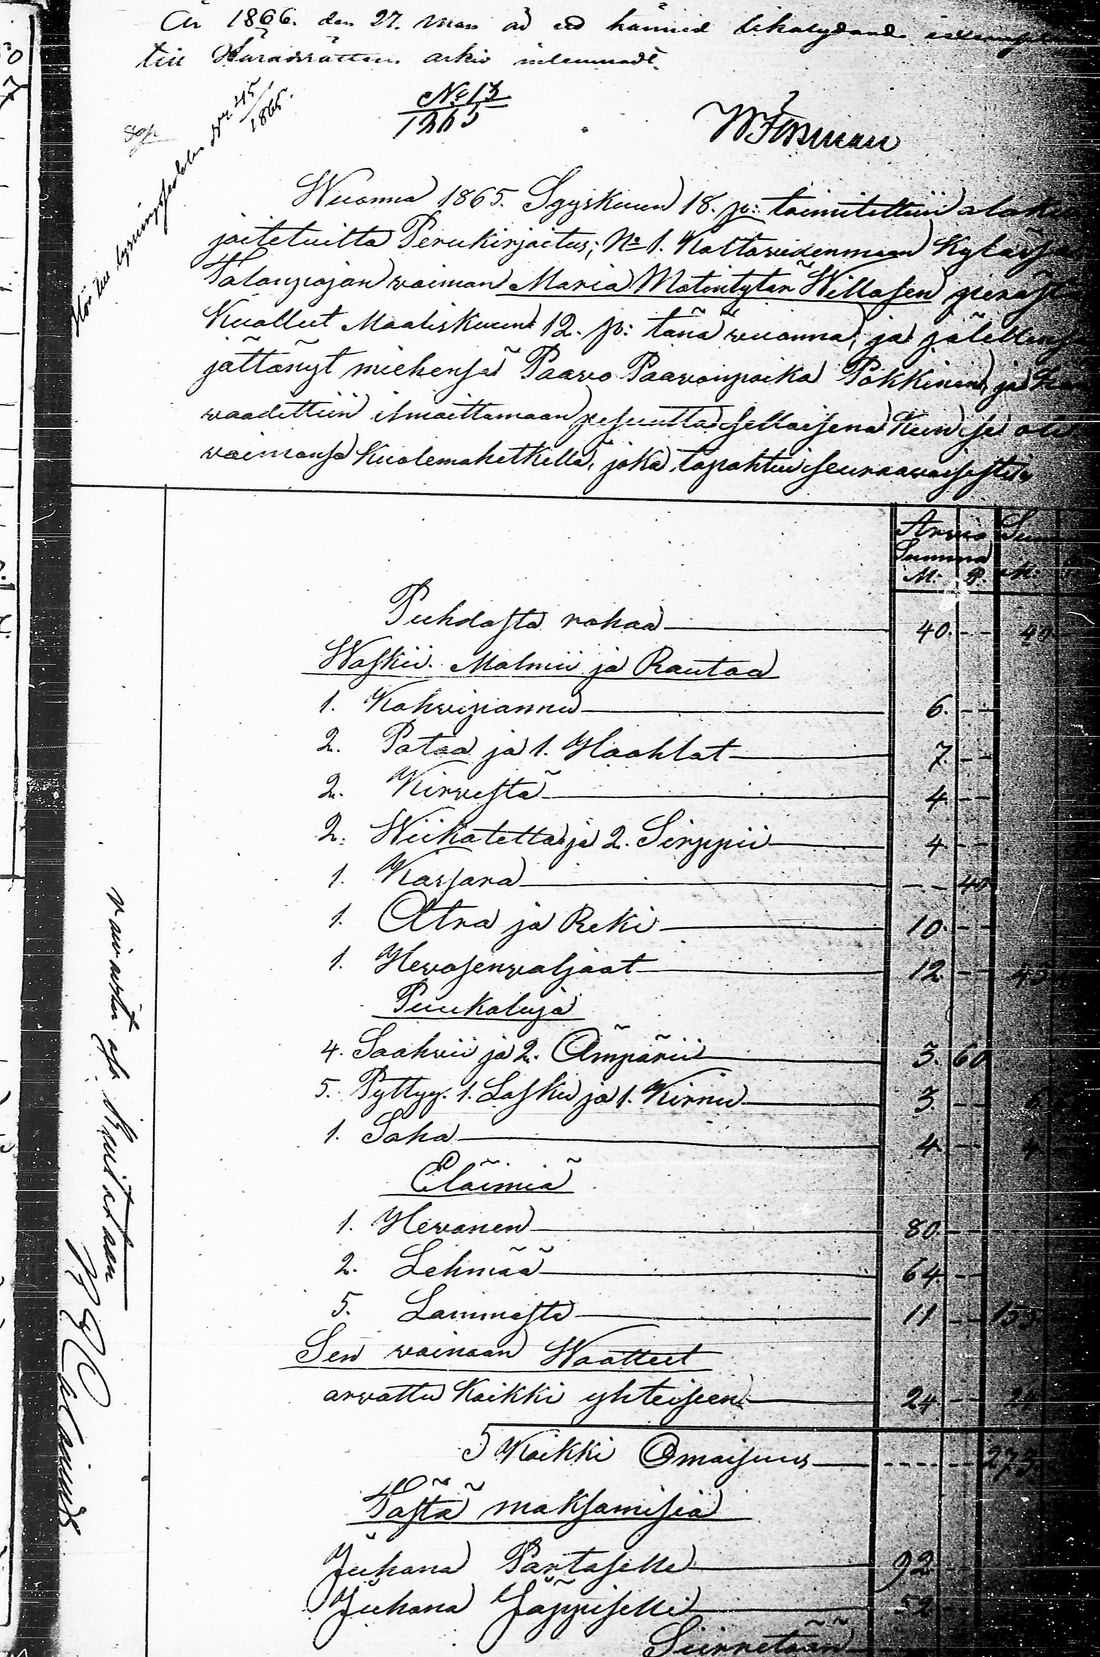 År 1866. den 27. Mars är ett härmed likalydande
till Häradsrättens arkiv inlemnadt.
No 13
1865
Wuonna 1865. Syyskuun 18. p: toimitettiin
joitetuilta Perukirjoitus; No 1. Kylässä
Talonpojan waimon Maria Matintytär Willasen perästä
Kuollut Maaliskuun 12. p: tänä wuonna, ja jälellensä
jättänyt miehensä Paavo Paavonpoika Pokkinen, ja
waadittiin ilmoittamaan pesuutta sellaisena Kuin se oli
waimonsa Kuolemahetkellä, joka tapahtui seuraavaisesti,
Arvio Summa
Summa
M. P. M.
Puhdasta rahaa 40. - - 40
Waskii. Malmii ja Rautaa
1. Kahvipannu 6. - -
2. Pataa ja 1. Haahlat 7. - -
2. Kirvestä 4 - -
2. Wiikatetta ja 2. Sirppii 4 - -
1. Kassara - - 40
1. Atra ja Reki 10. - -
1. Hevosenvaljaat 12 - - 43
Puukaluja
4. Saahvii ja 2. Ämpärii 3. 60
5. Pyttyy. 1. Lasku ja 1. Kirnu 3 - - 6
1. Saha 4 - - 4
Eläimiä
1. Hevonen 80. - -
2. Lehmää 64 - -
5. Lammasta 11 - - 155
Sen wainaan Waatteet
arvattu Kaikki yhteiseen 24 - - 24
Kaikki Omaisuus - - - - 273
Tästä maksamisia
Juhana Partaselle 92 - -
Juhana Jäppiselle 52 - -
Siirretään